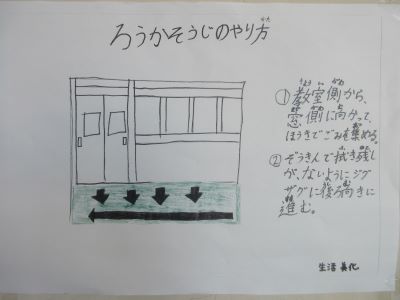 ろうかそうじのやり方
①教室側から、
窓側に向かって、
ほうきでごみを集める。
②ぞうきんで拭き残し
が、ないようにジグ
ザグに後ろ向きに
進む。
生活 美化